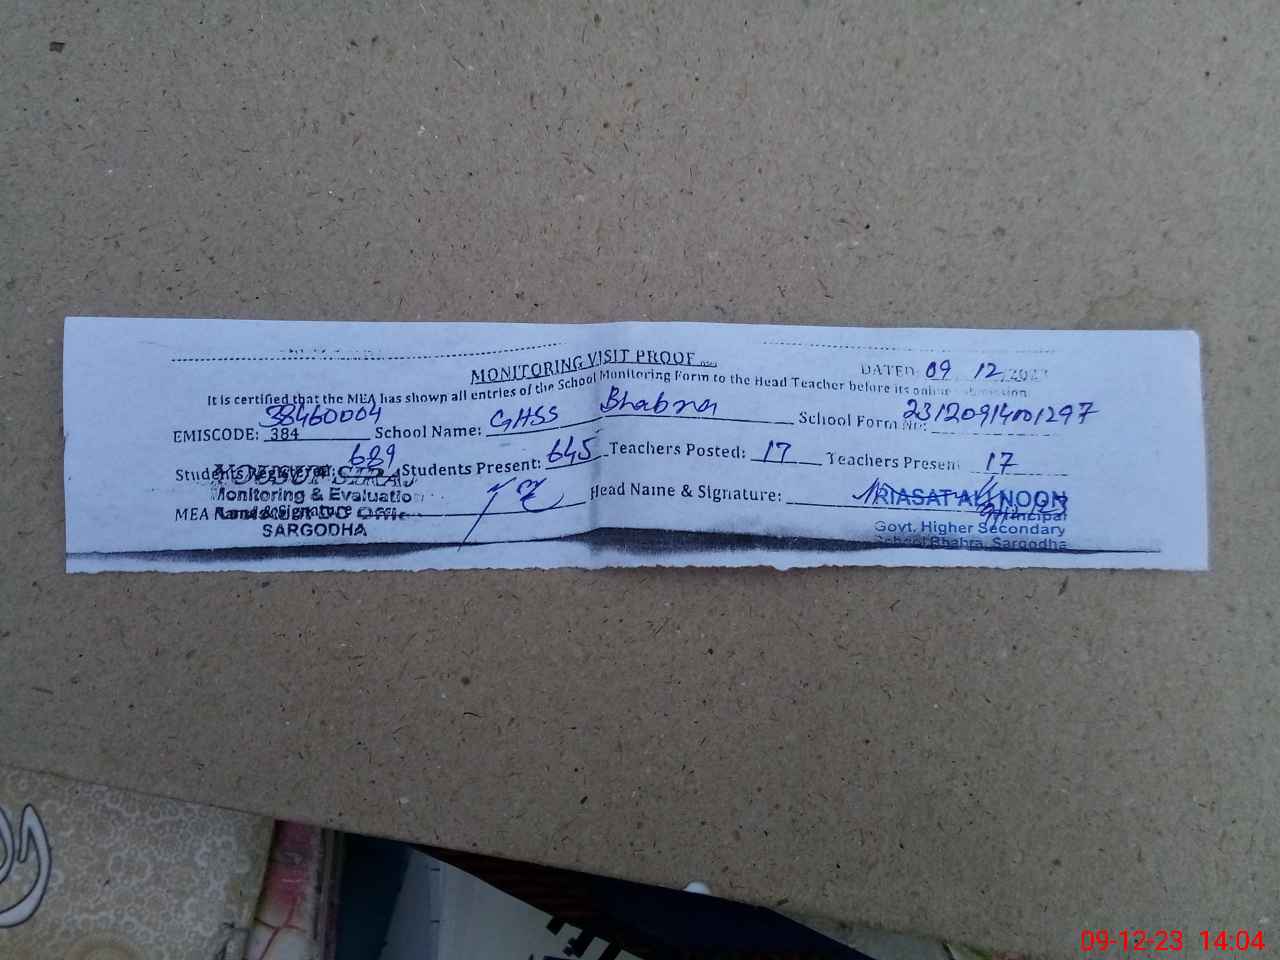 MONITORING VISIT PROOF
DATED: 09 12 2023
It is certified that the MEA has shown all entries of the School Monitoring Form to the Head Teacher before its online submission.
EMISCODE: 384 38460004 School Name: GHSS Bhabra School Form No: 23120914001297
Students Registered: 689 Students Present: 645 Teachers Posted: 17 Teachers Present 17
MEA Name & Signature Head Name & Signature:
Monitoring & Evaluation
SARGODHA
RIASAT ALI NOON
Principal
Govt. Higher Secondary
School Bhabra, Sargodha
09-12-23 14:04